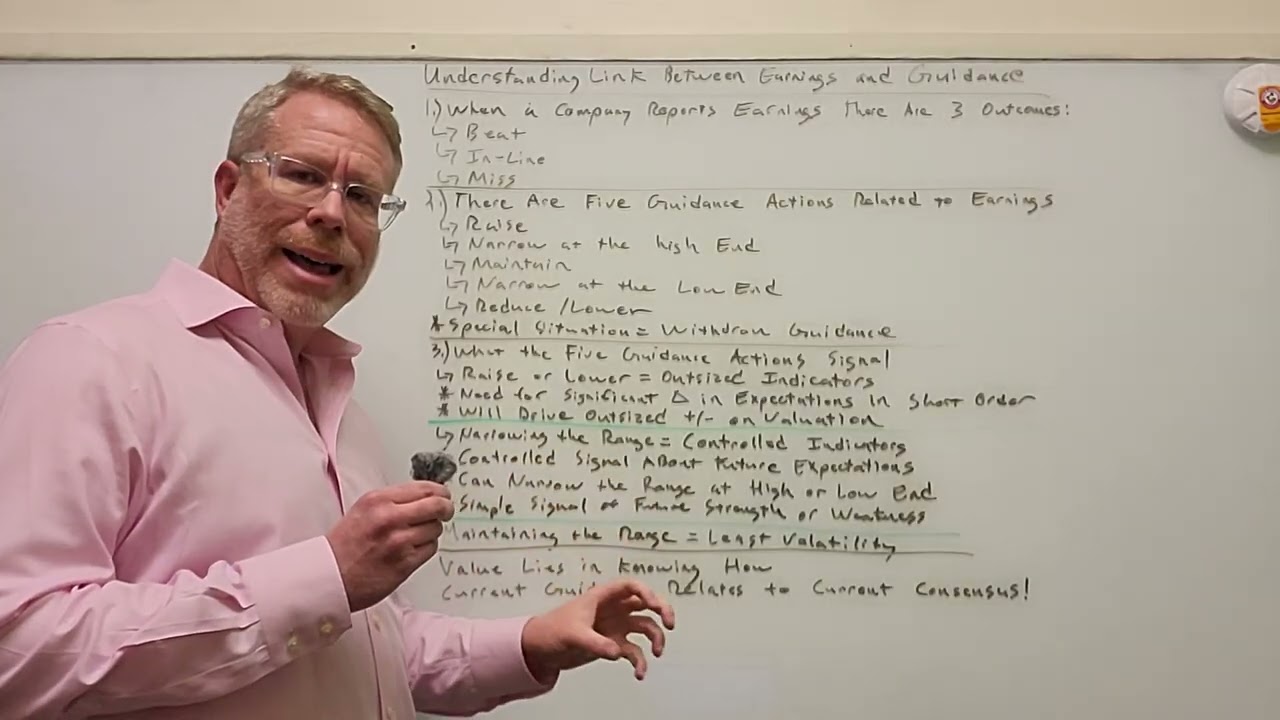 Understanding Link Between Earnings and Guidance
1.) When a Company Reports Earnings There Are 3 Outcomes:
↳ Beat
↳ In-Line
↳ Miss
2.) There Are Five Guidance Actions Related to Earnings
↳ Raise
↳ Narrow at the high End
↳ Maintain
↳ Narrow at the Low End
↳ Reduce / Lower
* Special Situation = Withdraw Guidance
3.) What the Five Guidance Actions Signal
↳ Raise or Lower = Outsized Indicators
* Need for Significant Δ in Expectations in Short Order
* Will Drive Outsized +/- on Valuation
↳ Narrowing the Range = Controlled Indicators
Controlled Signal About Future Expectations
Can Narrow the Range at High or Low End
Simple Signal of Future Strength or Weakness
Maintaining the Range = Least Valatility
Value Lies in Knowing How
Current Relates to Current Consensus!